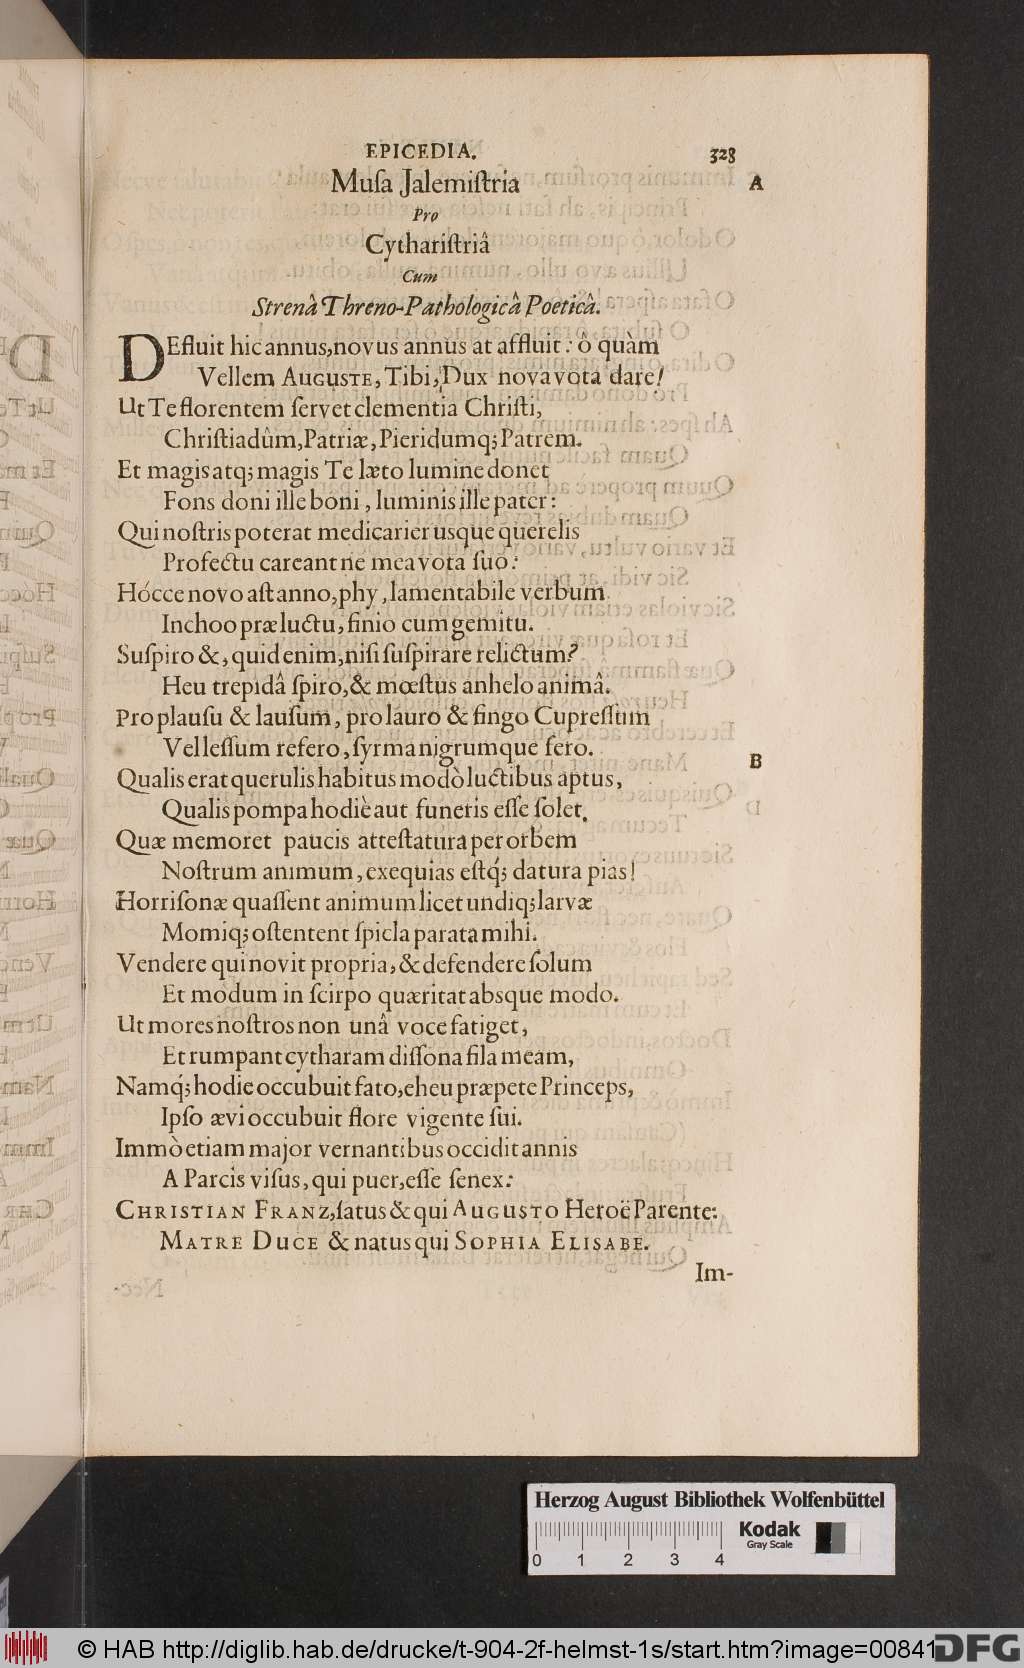 EPICEDIA. 328
Muſa Jalemiſtria A
Pro
Cythariſtriâ
Cum
Strenâ Threno-Pathologicâ Poeticâ.
DEfluit hic annus, novus annus at affluit: ô quàm
Vellem AUGUSTE, Tibi, Dux nova vota dare!
Ut Te florentem ſervet clementia Chriſti,
Chriſtiadûm, Patriæ, Pieridumq; Patrem.
Et magis atq; magis Te læto lumine donet
Fons doni ille boni, luminis ille pater:
Qui noſtris poterat medicarier usque querelis
Profectu careant ne mea vota ſuo:
Hócce novo aſt anno, phy, lamentabile verbum
Inchoo præ luctu, finio cum gemitu.
Suſpiro &, quid enim, niſi ſuſpirare relictum?
Heu trepidâ ſpiro, & mœſtus anhelo animâ.
Pro plauſu & lauſum, pro lauro & fingo Cupreſſum
Vel leſſum refero, ſyrma nigrumque fero.
B
Qualis erat querulis habitus modò luctibus aptus,
Qualis pompa hodiè aut funeris eſſe ſolet.
Quæ memoret paucis atteſtatura per orbem
Noſtrum animum, exequias eſtq́; datura pias!
Horriſonæ quaſſent animum licet undiq; larvæ
Momiq; oſtentent ſpicla parata mihi.
Vendere qui novit propria, & defendere ſolum
Et modum in ſcirpo quæritat absque modo.
Ut mores noſtros non unâ voce fatiget,
Et rumpant cytharam diſſona fila meam,
Namq́; hodie occubuit fato, eheu præpete Princeps,
Ipſo ævi occubuit flore vigente ſui.
Immò etiam major vernantibus occidit annis
A Parcis viſus, qui puer, eſſe ſenex:
CHRISTIAN FRANZ, ſatus & qui AUGUSTO Heroë Parente:
MATRE DUCE & natus qui SOPHIA ELISABE.
Im-
Herzog August Bibliothek Wolfenbüttel
Kodak
Gray Scale
0 1 2 3 4
© HAB http://diglib.hab.de/drucke/t-904-2f-helmst-1s/start.htm?image=00841
DFG